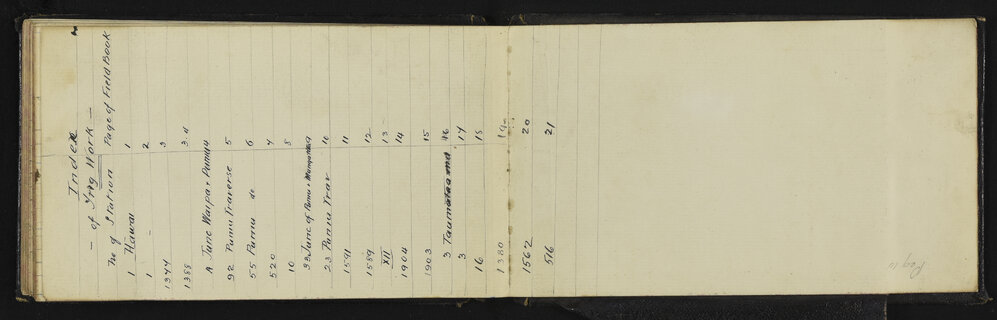 Index
— of Trig Work —
No of Station Page of Field Book
1 Hawai 1
1 2
1344 3
1388 3.a
A Junc Waipa & Puniu 4
92 Puniu Traverse 5
55 Puniu do 6
520 7
10 8
33 Junc of Puniu & 9
23 Puniu Trav 10
1591 11
1589 12
XII 13
1904 14
1903 15
3 16
3 17
16 18
1380 19
1562 20
516 21